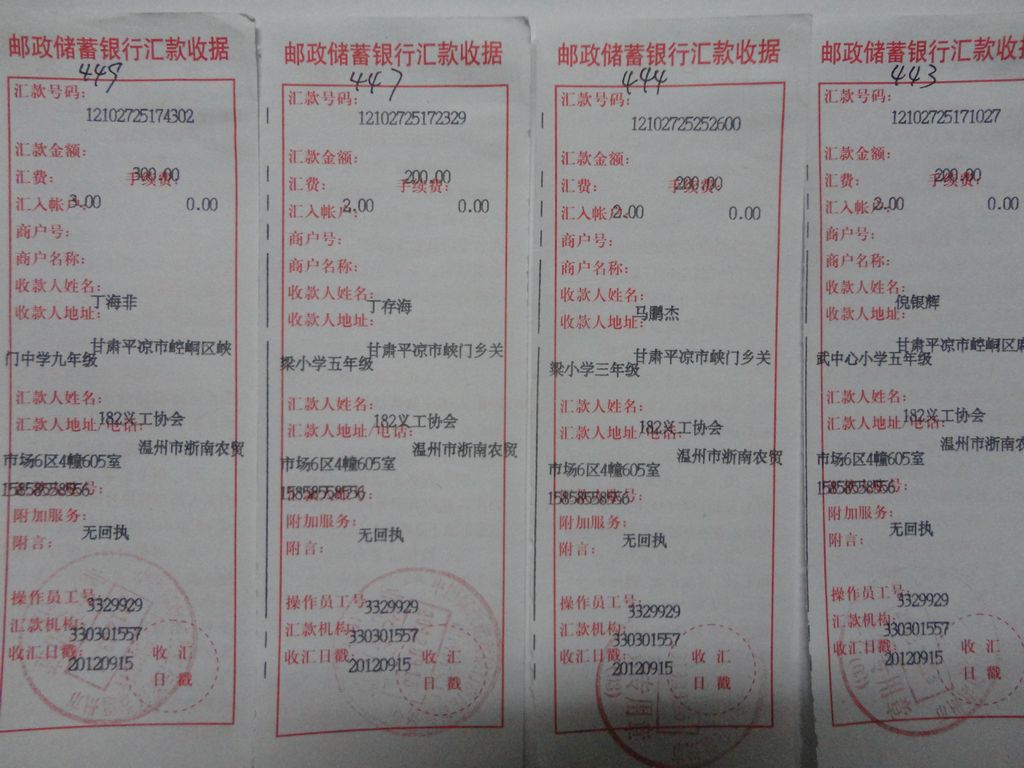 邮政储蓄银行汇款收据
449
汇款号码:
12102725174302
汇款金额:
300.00
汇费: 手续费:
3.00 0.00
汇入帐户:
商户号:
商户名称:
收款人姓名:
丁海非
收款人地址:
甘肃平凉市崆峒区峡
门中学九年级
汇款人姓名:
182义工协会
汇款人地址/电话:
温州市浙南农贸
市场6区4幢605室
15858558956
附加服务:
无回执
附言:
操作员工号:
3329929
汇款机构:
330301557
收汇日戳:
20120915
收汇
日戳
邮政储蓄银行汇款收据
447
汇款号码:
12102725172329
汇款金额:
200.00
汇费: 手续费:
2.00 0.00
汇入帐户:
商户号:
商户名称:
收款人姓名:
丁存海
收款人地址:
甘肃平凉市峡门乡关
梁小学五年级
汇款人姓名:
182义工协会
汇款人地址/电话:
温州市浙南农贸
市场6区4幢605室
15858558956
附加服务:
无回执
附言:
操作员工号:
3329929
汇款机构:
330301557
收汇日戳:
20120915
收汇
日戳
邮政储蓄银行汇款收据
444
汇款号码:
12102725252600
汇款金额:
200.00
汇费: 手续费:
2.00 0.00
汇入帐户:
商户号:
商户名称:
收款人姓名:
马鹏杰
收款人地址:
甘肃平凉市峡门乡关
梁小学三年级
汇款人姓名:
182义工协会
汇款人地址/电话:
温州市浙南农贸
市场6区4幢605室
15858558956
附加服务:
无回执
附言:
操作员工号:
3329929
汇款机构:
330301557
收汇日戳:
20120915
收汇
日戳
邮政储蓄银行汇款收据
443
汇款号码:
12102725171027
汇款金额:
200.00
汇费: 手续费:
2.00 0.00
汇入帐户:
商户号:
商户名称:
收款人姓名:
倪银辉
收款人地址:
甘肃平凉市崆峒区麻
武中心小学五年级
汇款人姓名:
182义工协会
汇款人地址/电话:
温州市浙南农贸
市场6区4幢605室
15858558956
附加服务:
无回执
附言:
操作员工号:
3329929
汇款机构:
330301557
收汇日戳:
20120915
收汇
日戳